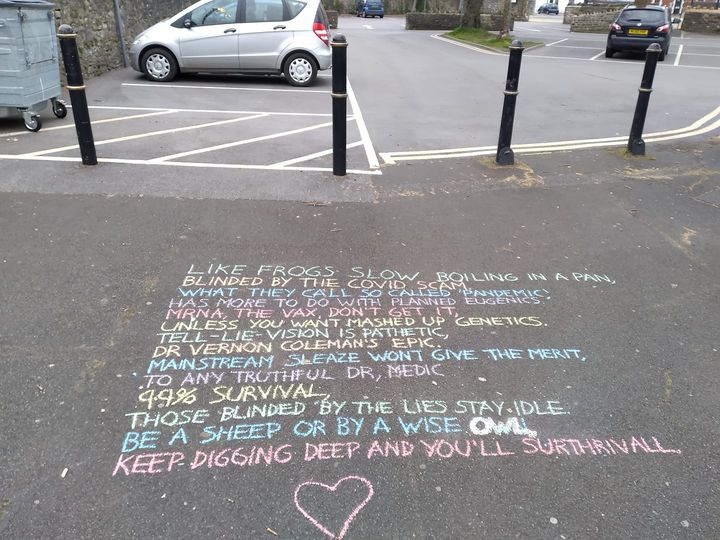 LIKE FROGS SLOW BOILING IN A PAN,
BLINDED BY THE COVID SCAM,
WHAT THEY CALL SO CALLED 'PANDEMIC'
HAS MORE TO DO WITH PLANNED EUGENICS.
MRNA, THE VAX, DON'T GET IT,
UNLESS YOU WANT MASHED UP GENETICS.
TELL-LIE-VISION IS PATHETIC,
DR VERNON COLEMAN'S EPIC.
MAINSTREAM SLEAZE WONT GIVE THE MERIT,
TO ANY TRUTHFUL DR, MEDIC
99% SURVIVAL,
THOSE BLINDED BY THE LIES STAY IDLE.
BE A SHEEP OR BY A WISE OWL
KEEP DIGGING DEEP AND YOU'LL SURTHRIVALL.